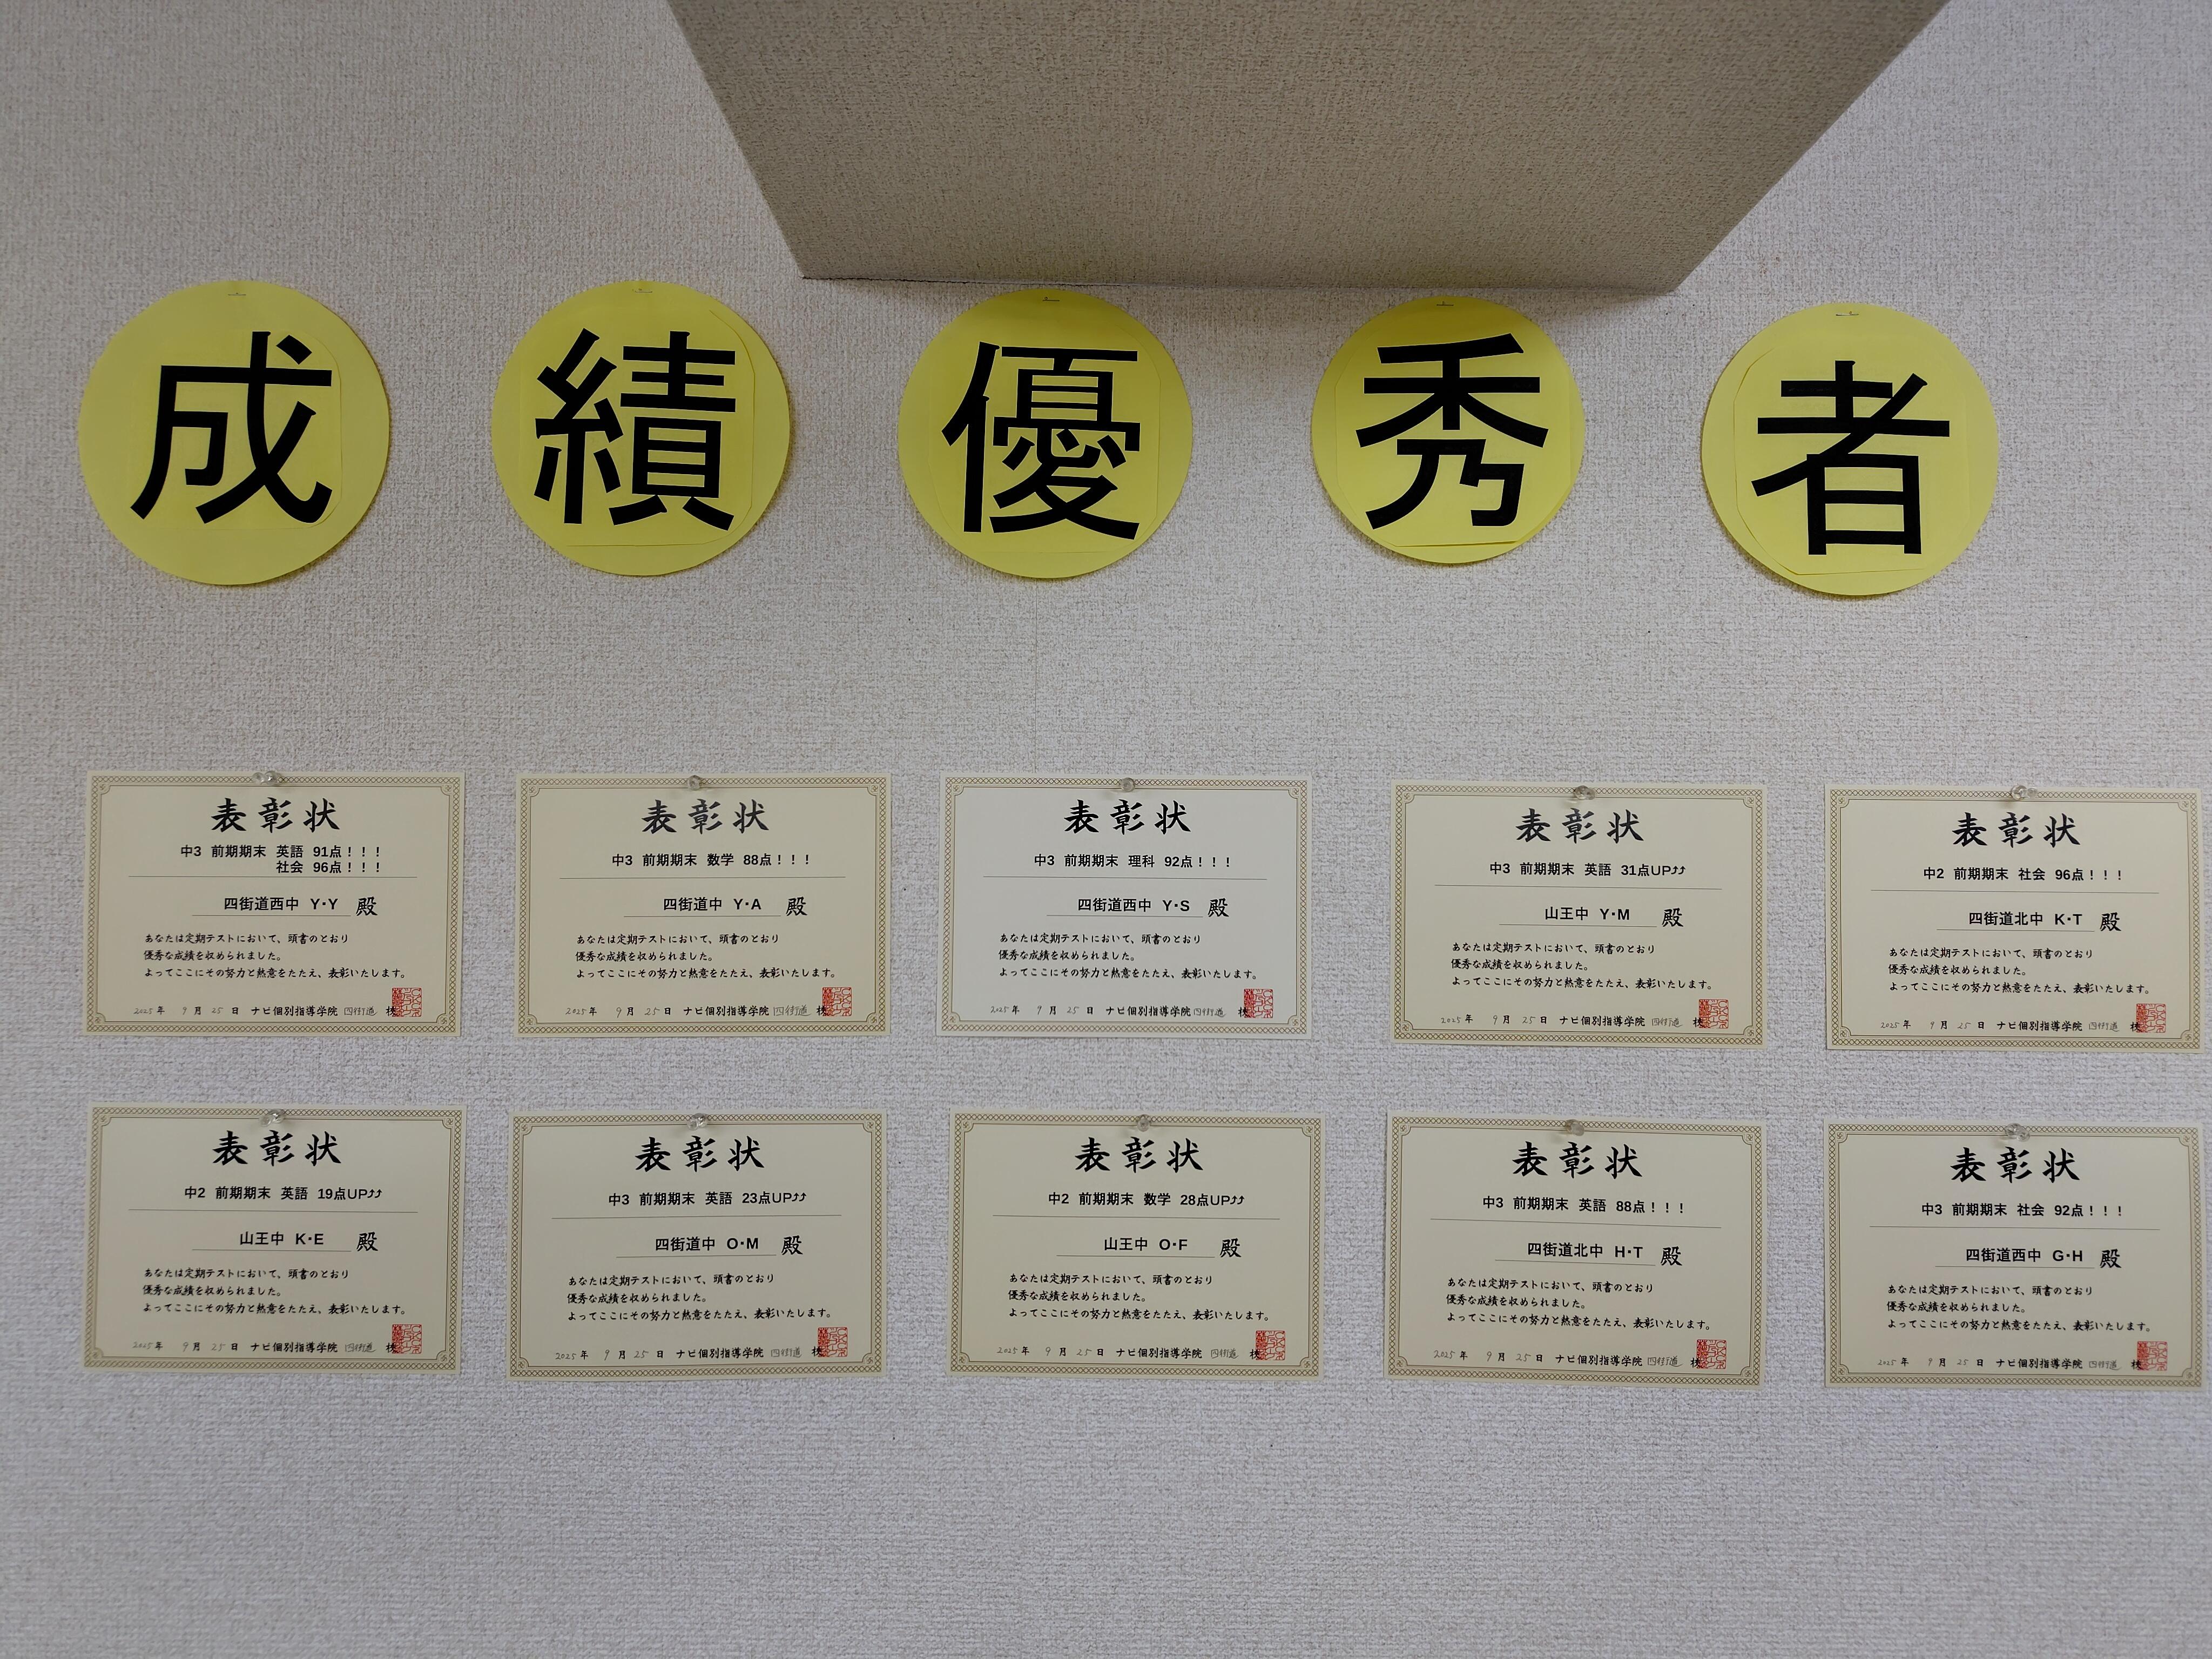 成績優秀者
表彰状
中3 前期期末 英語 91点！！！
社会 96点！！！
四街道西中 Y・Y 殿
あなたは定期テストにおいて、頭書のとおり
優秀な成績を収められました。
よってここにその努力と熱意をたたえ、表彰いたします。
2025年 9月 25日 ナビ個別指導学院 四街道 校
表彰状
中3 前期期末 数学 88点！！！
四街道中 Y・A 殿
あなたは定期テストにおいて、頭書のとおり
優秀な成績を収められました。
よってここにその努力と熱意をたたえ、表彰いたします。
2025年 9月 25日 ナビ個別指導学院 四街道 校
表彰状
中3 前期期末 理科 92点！！！
四街道西中 Y・S 殿
あなたは定期テストにおいて、頭書のとおり
優秀な成績を収められました。
よってここにその努力と熱意をたたえ、表彰いたします。
2025年 9月 25日 ナビ個別指導学院 四街道 校
表彰状
中3 前期期末 英語 31点UP⤴⤴
山王中 Y・M 殿
あなたは定期テストにおいて、頭書のとおり
優秀な成績を収められました。
よってここにその努力と熱意をたたえ、表彰いたします。
2025年 9月 25日 ナビ個別指導学院 四街道 校
表彰状
中2 前期期末 社会 96点！！！
四街道北中 K・T 殿
あなたは定期テストにおいて、頭書のとおり
優秀な成績を収められました。
よってここにその努力と熱意をたたえ、表彰いたします。
2025年 9月 25日 ナビ個別指導学院 四街道 校
表彰状
中2 前期期末 英語 19点UP⤴⤴
山王中 K・E 殿
あなたは定期テストにおいて、頭書のとおり
優秀な成績を収められました。
よってここにその努力と熱意をたたえ、表彰いたします。
2025年 9月 25日 ナビ個別指導学院 四街道 校
表彰状
中3 前期期末 英語 23点UP⤴⤴
四街道中 O・M 殿
あなたは定期テストにおいて、頭書のとおり
優秀な成績を収められました。
よってここにその努力と熱意をたたえ、表彰いたします。
2025年 9月 25日 ナビ個別指導学院 四街道 校
表彰状
中2 前期期末 数学 28点UP⤴⤴
山王中 O・F 殿
あなたは定期テストにおいて、頭書のとおり
優秀な成績を収められました。
よってここにその努力と熱意をたたえ、表彰いたします。
2025年 9月 25日 ナビ個別指導学院 四街道 校
表彰状
中3 前期期末 英語 88点！！！
四街道北中 H・T 殿
あなたは定期テストにおいて、頭書のとおり
優秀な成績を収められました。
よってここにその努力と熱意をたたえ、表彰いたします。
2025年 9月 25日 ナビ個別指導学院 四街道 校
表彰状
中3 前期期末 社会 92点！！！
四街道西中 G・H 殿
あなたは定期テストにおいて、頭書のとおり
優秀な成績を収められました。
よってここにその努力と熱意をたたえ、表彰いたします。
2025年 9月 25日 ナビ個別指導学院 四街道 校